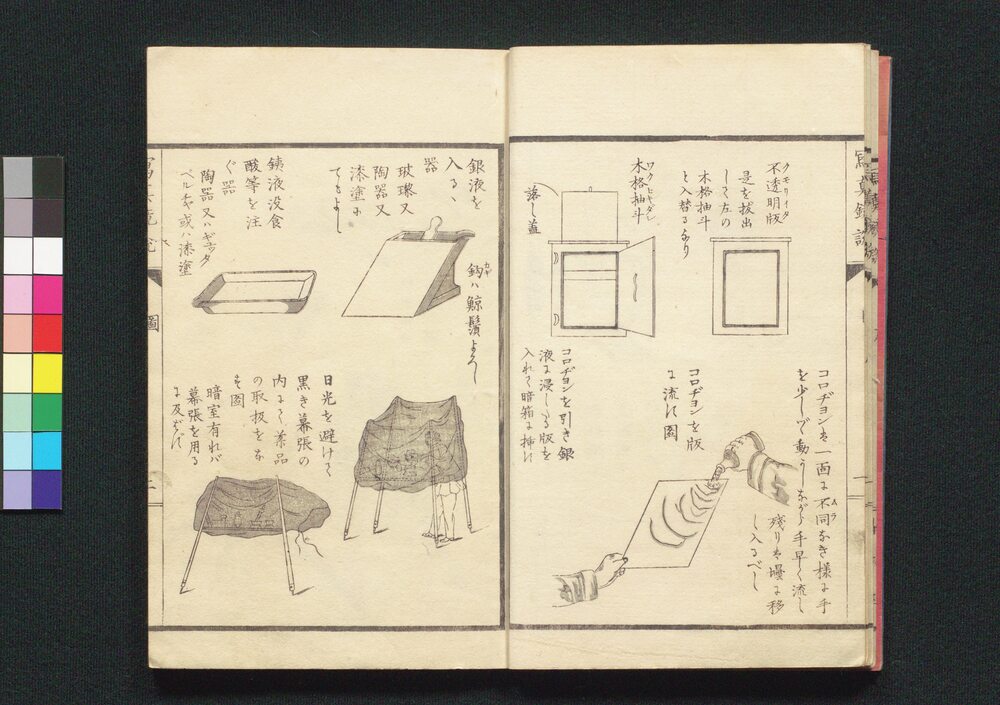 不透明版
クモリイタ
是を抜出
して左の
木格抽斗
と入替るなり
木格抽斗
ワクヒキダシ
落し蓋
コロヂヨンを一面に不同なき様に手
ムラ
を少しづゝ動かしながら手早く流し
残りを壜に移
し入るべし
コロヂヨンを版
に流す図
コロヂヨンを引き銀
液に浸したる版を
入れて暗箱に挿す
銀液を
入るゝ
器
玻璨又
陶器又
漆塗に
てもよし
鈎ハ鯨鬚よろし
カギ
鐵液没食
酸等を注
ぐ器
陶器又ハギュッタ
ペルチャ或ハ漆塗
日光を避けて
黒き幕張の
内にて薬品
の取扱をな
す図
暗室有れバ
幕張を用る
に及ばず
圖